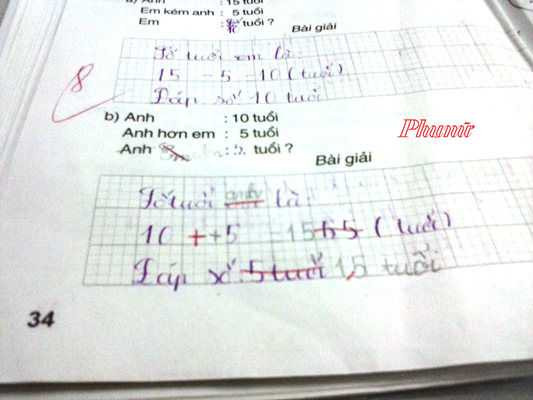 a) Anh : 15 tuổi
Em kém anh : 5 tuổi
Em : tuổi ?
Bài giải
Số tuổi em là:
15 - 5 = 10 (tuổi)
Đáp số 10 tuổi
8
b) Anh : 10 tuổi
Anh hơn em : 5 tuổi
Anh : tuổi ?
Phunữ
Bài giải
Số tuổi anh là
10 + +5 = 15 (tuổi)
Đáp số: 5 tuổi 15 tuổi
34